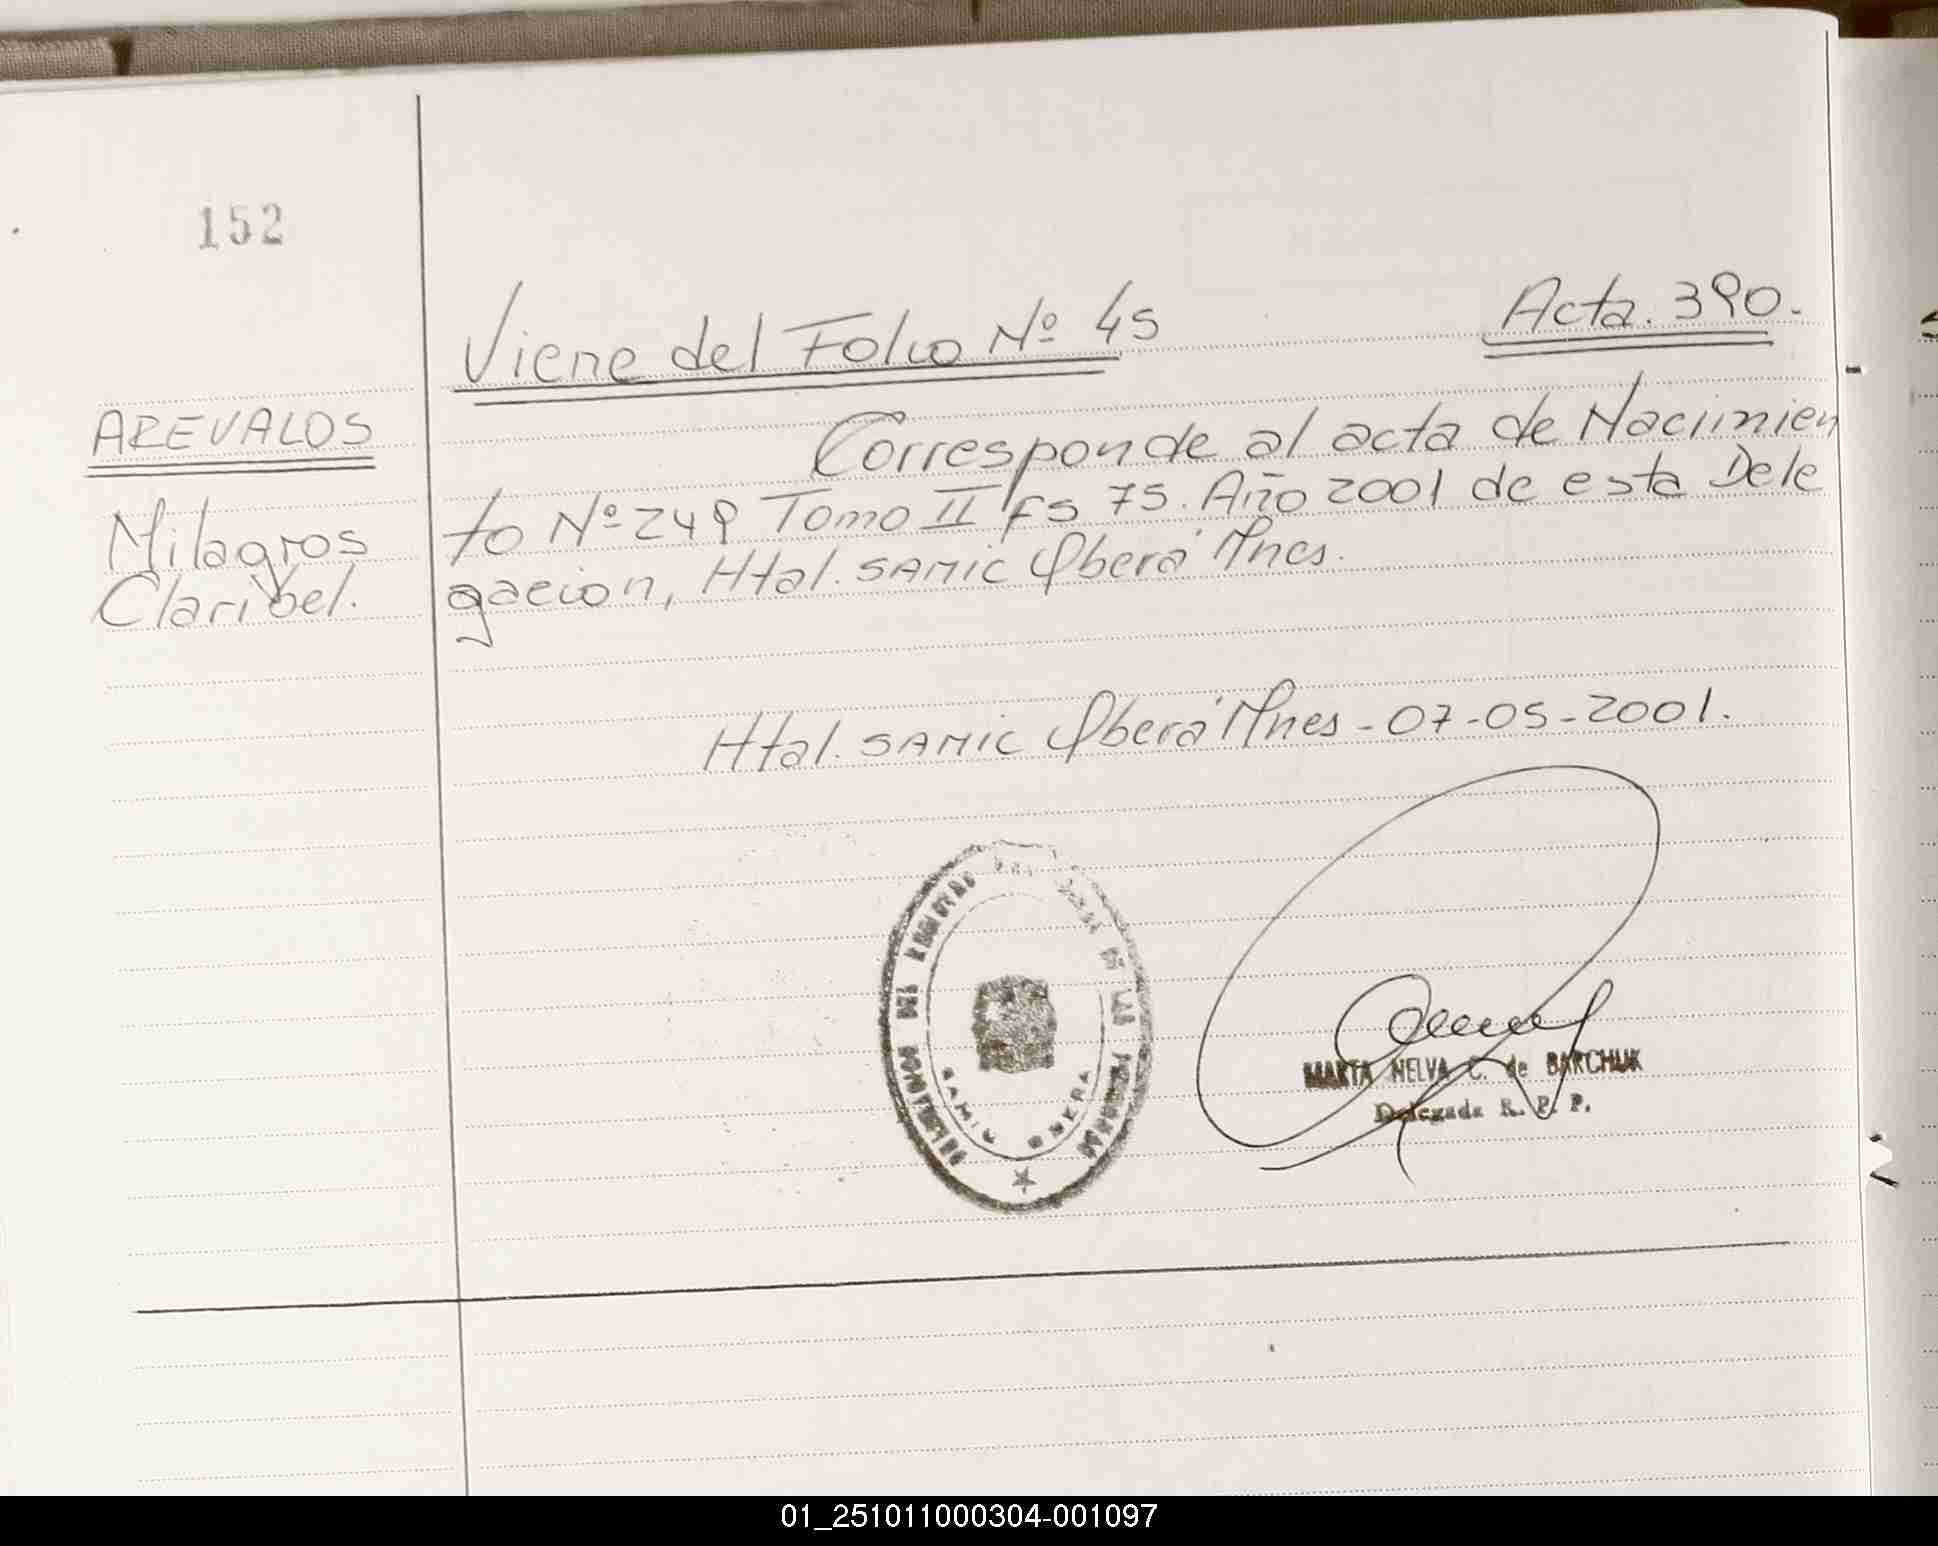 152
Viene del Folio Nº 45
Acta. 390.
AREVALOS
Milagros
Claribel.
Corresponde al acta de Nacimien
to Nº 249 Tomo II Fs 75. Año 2001 de esta Dele
gacion, Htal. SAMIC Oberá Mnes.
Htal. SAMIC Oberá Mnes - 07-05-2001.
DEL REGISTRO
DE LAS PERSONAS
SAMIC OBERA
MARTA NELVA C. de BARCHUK
Delegada R. P. P.
01_251011000304-001097